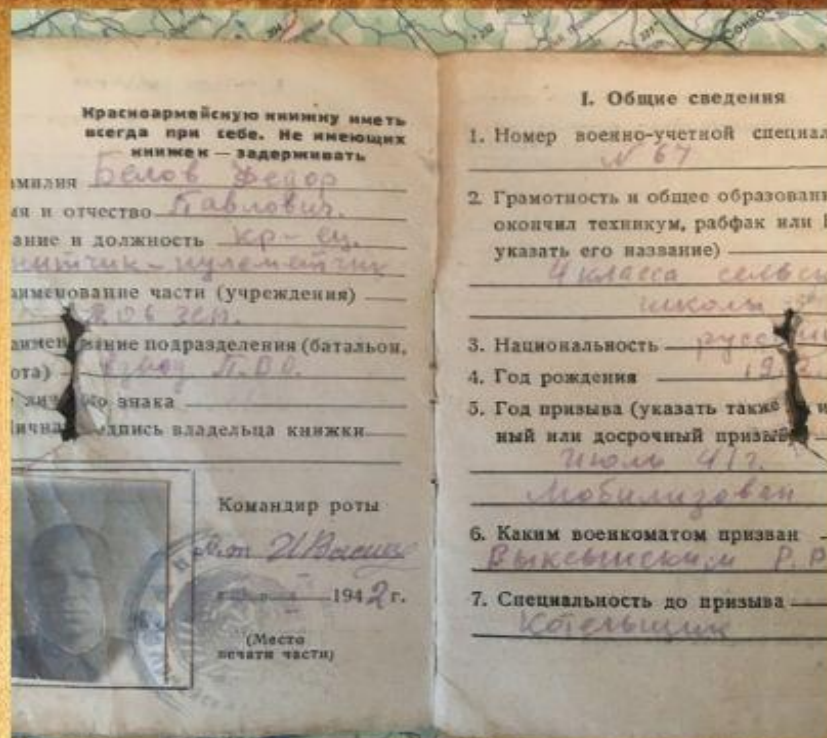 Красноармейскую книжку иметь
всегда при себе. Не имеющих
книжек — задерживать
амилия Белов Федор
мя и отчество Павлович.
ание и должность кр-ец.
пулеметчик
аименование части (учреждения)
зен.
аимен вание подразделения (батальон,
ота) взвод П.В.О.
личного знака
ична одпись владельца книжки
Командир роты
194 2 г.
(Место
печати части)
I. Общие сведения
1. Номер военно-учетной специал
№ 67
2. Грамотность и общее образовани
окончил техникум, рабфак или
указать его название)
4 класса сельск
школы
3. Национальность русс
4. Год рождения
5. Год призыва (указать также
ный или досрочный призыв
Июль 41 г.
Мобилизован
6. Каким военкоматом призван
Выксынским Р.
7. Специальность до призыва
Котельщик